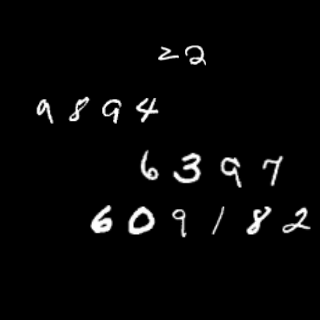 22
9894
6397
609182